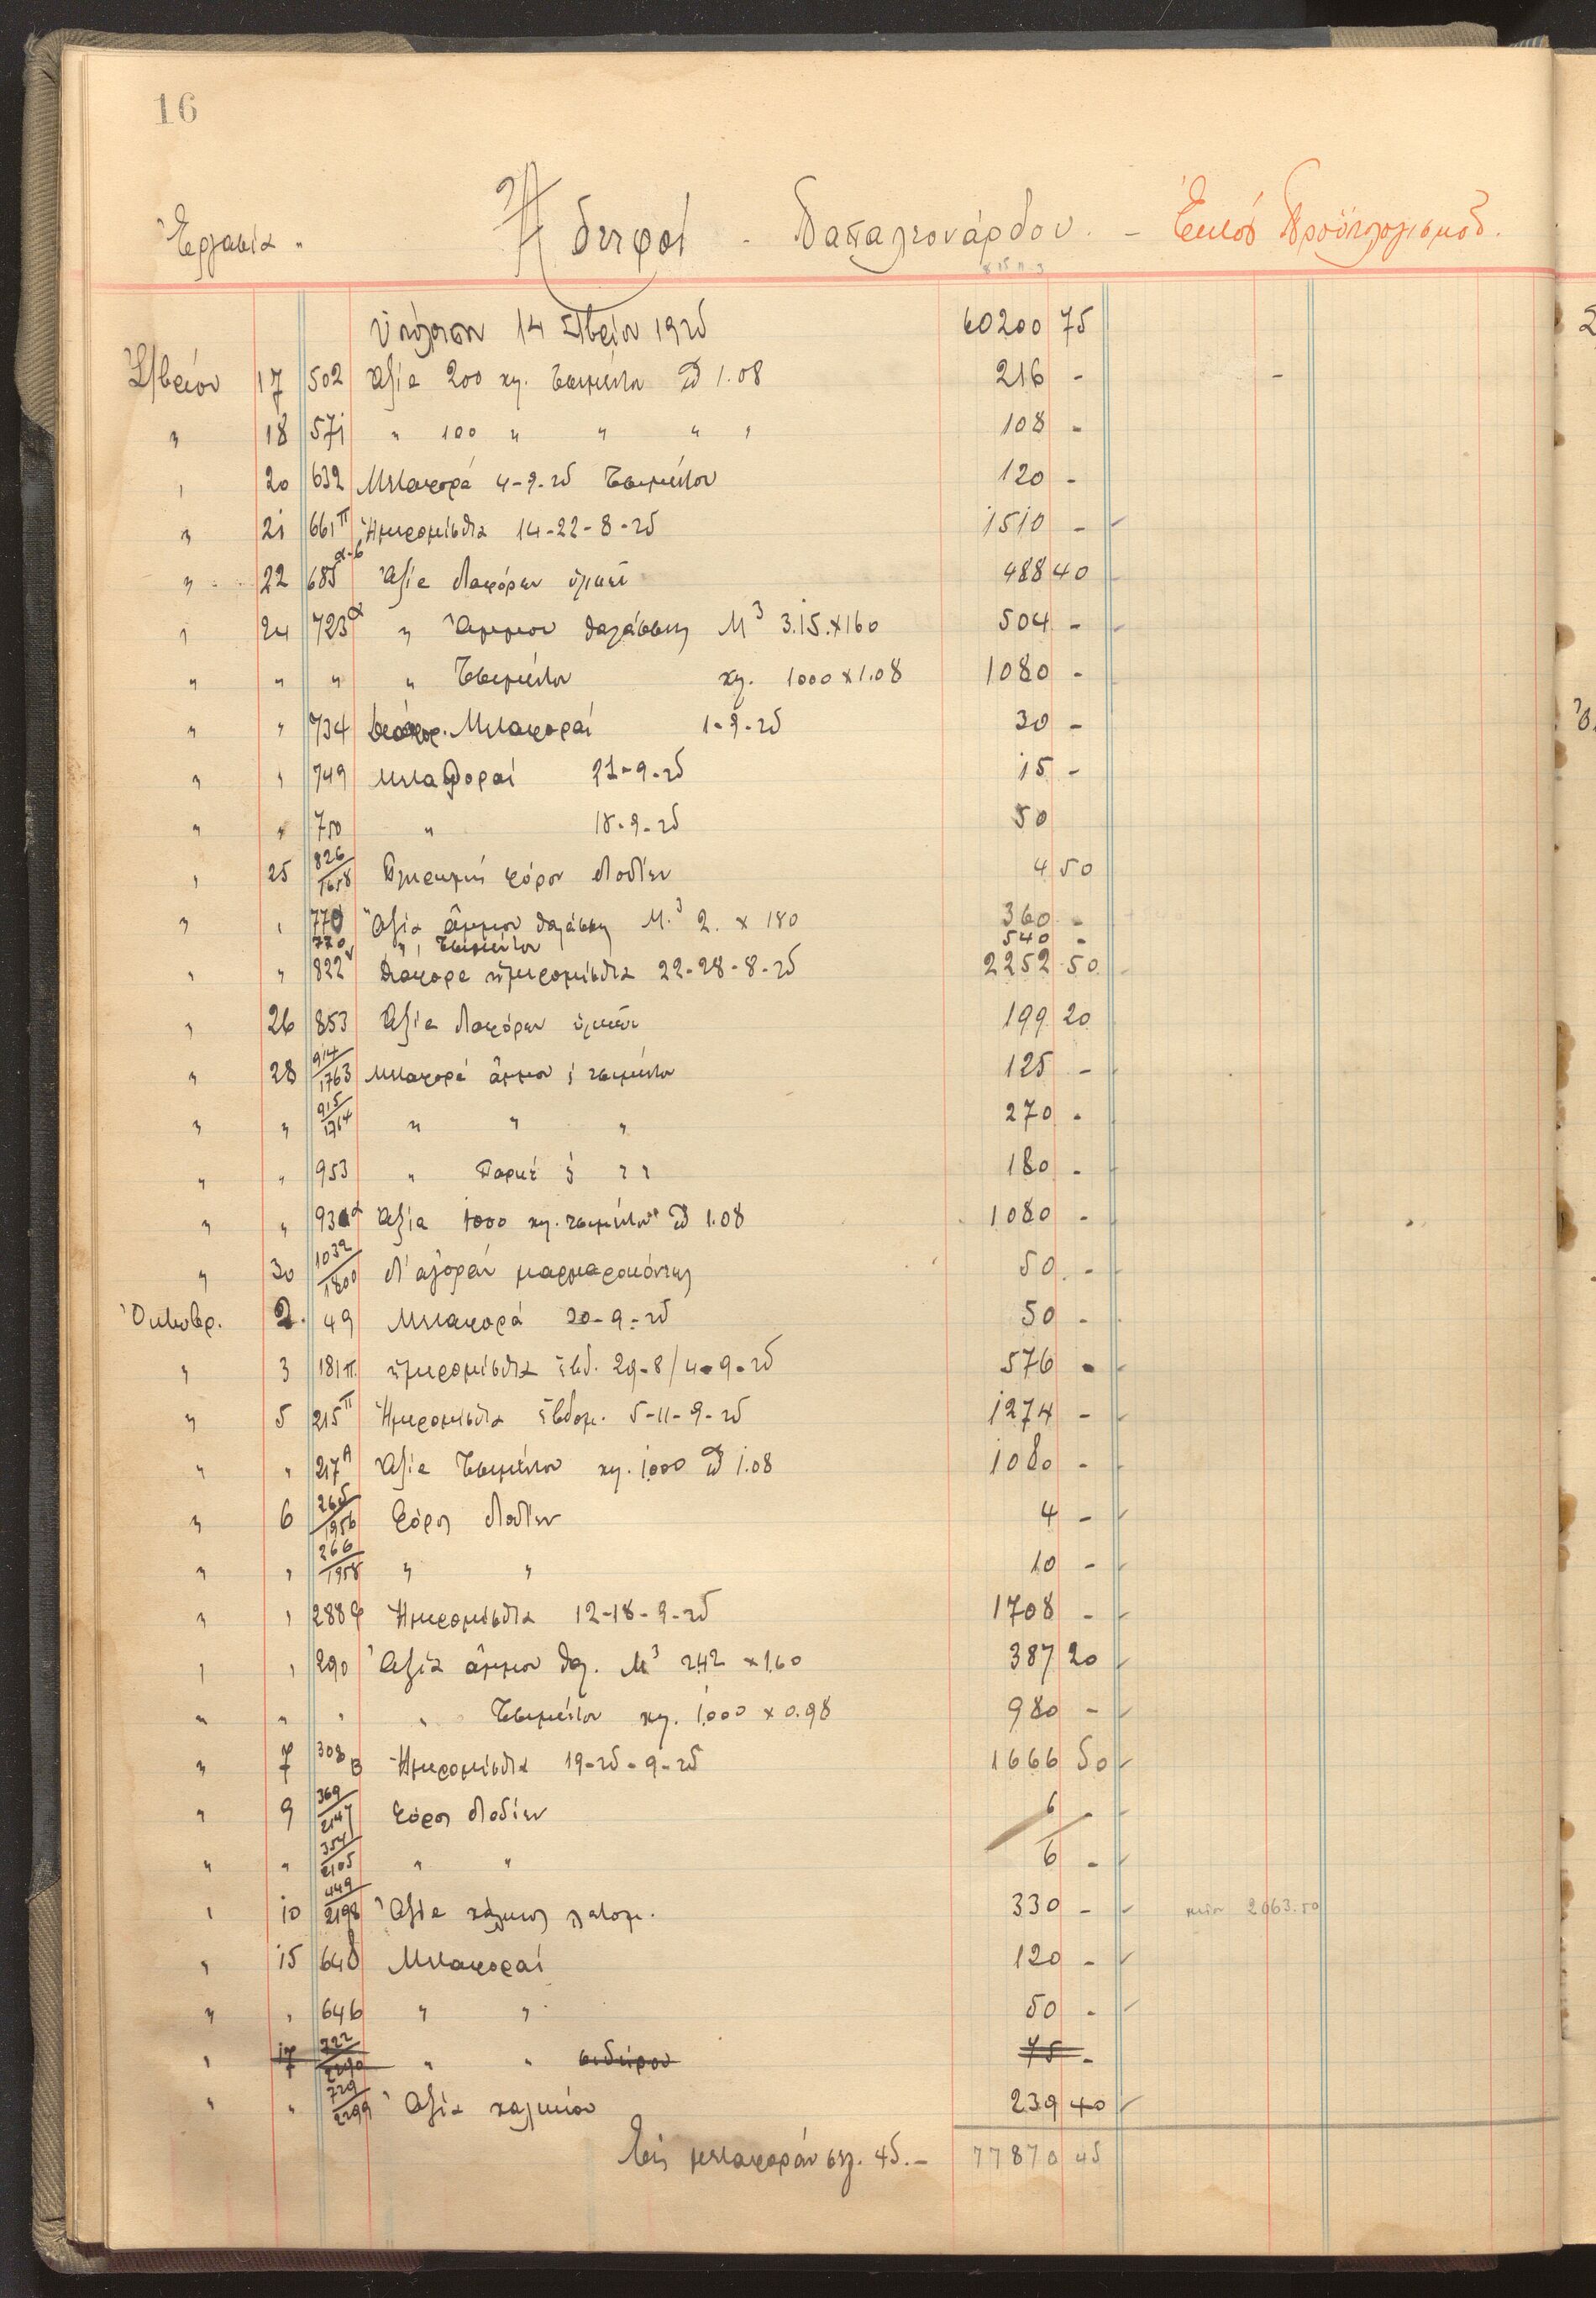 16
Ἐργασία " Ἀδερφοί - Παπαλεονάρδου. - Ἐκτός Προϋπολογισμοῦ.
Ὑπόλοιπον 14 Σ/βρίου 1925 60200 75
Σ/βρίου 17 502 Ἀξία 200 χγ. τσιμέντου 1.08 216 -
" 18 571 " 100 " " " " 108 -
" 20 632 Μεταφορά 4-9-25 Τσιμέντου 120 -
" 21 661π Ἡμερομίσθια 14-22-8-25 1510 -
" 22 685 α-β Ἀξία διαφόρων ὑλικῶν 488 40
" 24 723α " Ἄμμου θαλάσσης Μ3 3.15.×160 504 -
" " " " Τσιμέντου χγ. 1000×1.08 1080 -
" " 734 Μεταφοραί 1-9-25 30 -
" " 749 Μεταφοραί 21-9-25 15 -
" " 750 " 18-9-25 50
" 25 826/1658 Πληρωμή φόρου διοδίων 4 50
" " 770 Ἀξία ἄμμου θαλάσσης Μ.3 2. × 180 360 -
770 " " Τσιμέντου 540 -
" " 822 Διάφορα ἡμερομίσθια 22-28-8-25 2252 50
" 26 853 Ἀξία διαφόρων ὑλικῶν 199 20
" 28 914/1763 Μεταφορά ἄμμου & τσιμέντου 125 -
" " 915/1764 " " " 270 -
" " 953 " 180 -
" " Ἀξία 1000 χγ. τσιμέντου 1.08 1080 -
" 30 1032/1800 Δι' ἀγοράν μαρμαροκόνεως 50 -
Ὀκτωβρ. 2. 49 Μεταφορά 20-9-25 50 -
" 3 181π. ἡμερομίσθια ἑβδ. 29-8/4-9-25 576 -
" 5 215π Ἡμερομίσθια ἑβδομ. 5-11-9-25 1274 -
" " 217Α Ἀξία Τσιμέντου χγ. 1000 1.08 1080 -
" 6 265/1956 Φόρος διοδίων 4 -
" " 266/1958 " " 10 -
" " 288φ Ἡμερομίσθια 12-18-9-25 1708 -
" " 290 Ἀξία ἄμμου θαλ. Μ3 2.42 ×160 387 20
" " " " Τσιμέντου χγ. 1000 × 0.98 980 -
" 7 308 Β Ἡμερομίσθια 19-25-9-25 1666 50
" 9 369/2147 Φόρος διοδίων 6 -
" " 354/2105 " " 6 -
" 10 449/2198 Ἀξία 330 - 2063.50
" 15 648 Μεταφοραί 120 -
" " 646 " " 50 -
" 17 722/2290 " " σιδήρου 75 -
" " 729/2299 Ἀξία χαλικίου 239 40
Εἰς μεταφοράν σελ. 45.- 77870 45